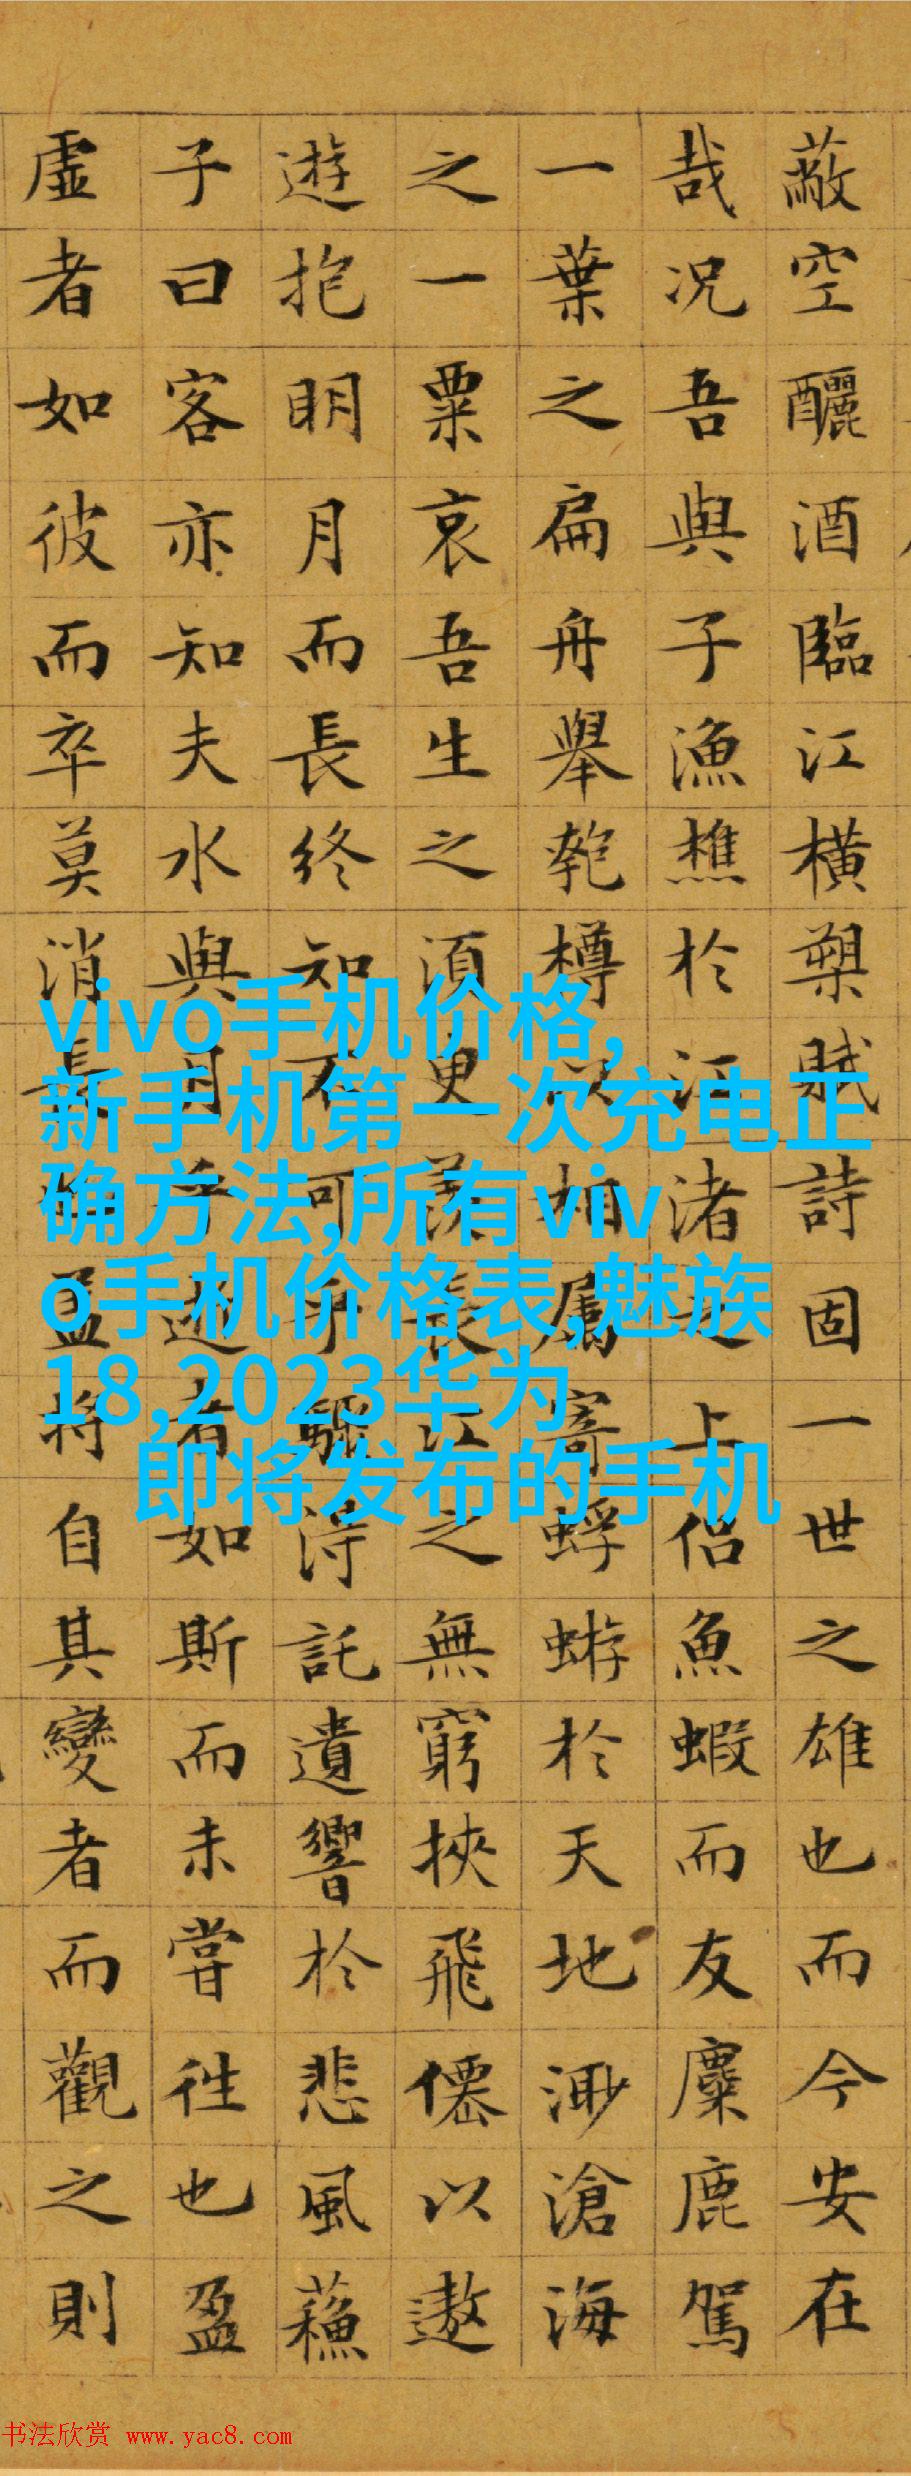 蔽空釃酒臨江橫槊賦詩固一世之雄也而今安在
哉况吾與子漁樵於江渚之上侣魚蝦而友麋鹿駕
一葉之扁舟舉匏樽以相屬寄蜉蝣於天地渺滄海
之一粟哀吾生之須臾羨長江之無窮挾飛僊以遨
遊抱明月而長終知不可乎驟得託遺響於悲風蘇
子曰客亦知夫水與月乎逝者如斯而未嘗往也盈
虛者如彼而卒莫消長也盖將自其變者而觀之則
vivo手机价格,
新手机第一次充电正
确方法,所有viv
o手机价格表,魅族
18,2023华为
即将发布的手机
书法欣赏 www.yac8.com